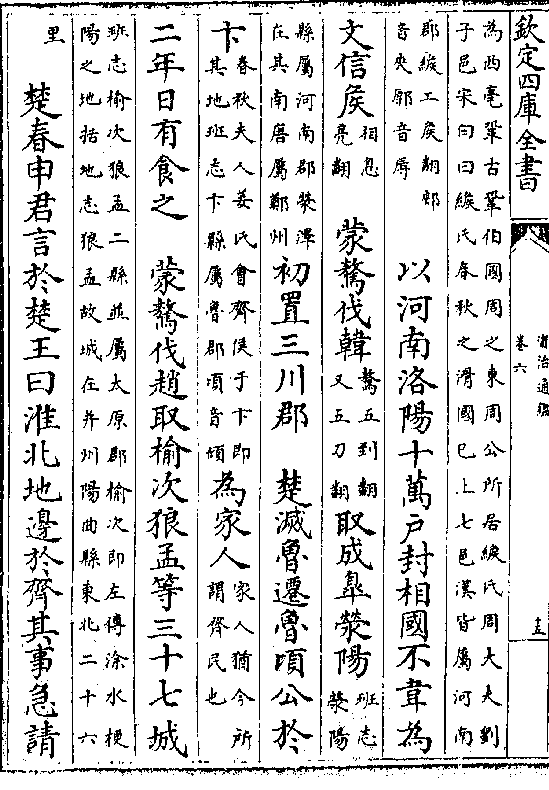 欽定四庫全書
資治通鑑
卷六
十五
為西亳鞏古鞏伯國周之東周公所居緱氏周大夫劉
子邑宋白曰緱氏春秋之滑國已上七邑漢皆屬河南
郡緱工侯翻郟
音夾郭音辱
以河南洛陽十萬戶封相國不韋為
文信侯相息
亮翻
蒙驁伐韓驁五到翻
又五刀翻
取成臯滎陽班志
滎陽
縣屬河南郡滎澤
在其南唐屬鄭州
初置三川郡 楚滅魯遷魯頃公於
卞春秋夫人姜氏會齊侯于卞即
其地班志卞縣屬魯郡頃音傾
為家人家人猶今所
謂齊民也
二年日有食之 蒙驁伐趙取榆次狼孟等三十七城
班志榆次狼孟二縣並屬太原郡榆次即左傳涂水梗
陽之地括地志狼孟故城在并州陽曲縣東北二十六
里
楚春申君言於楚王曰淮北地邊於齊其事急請